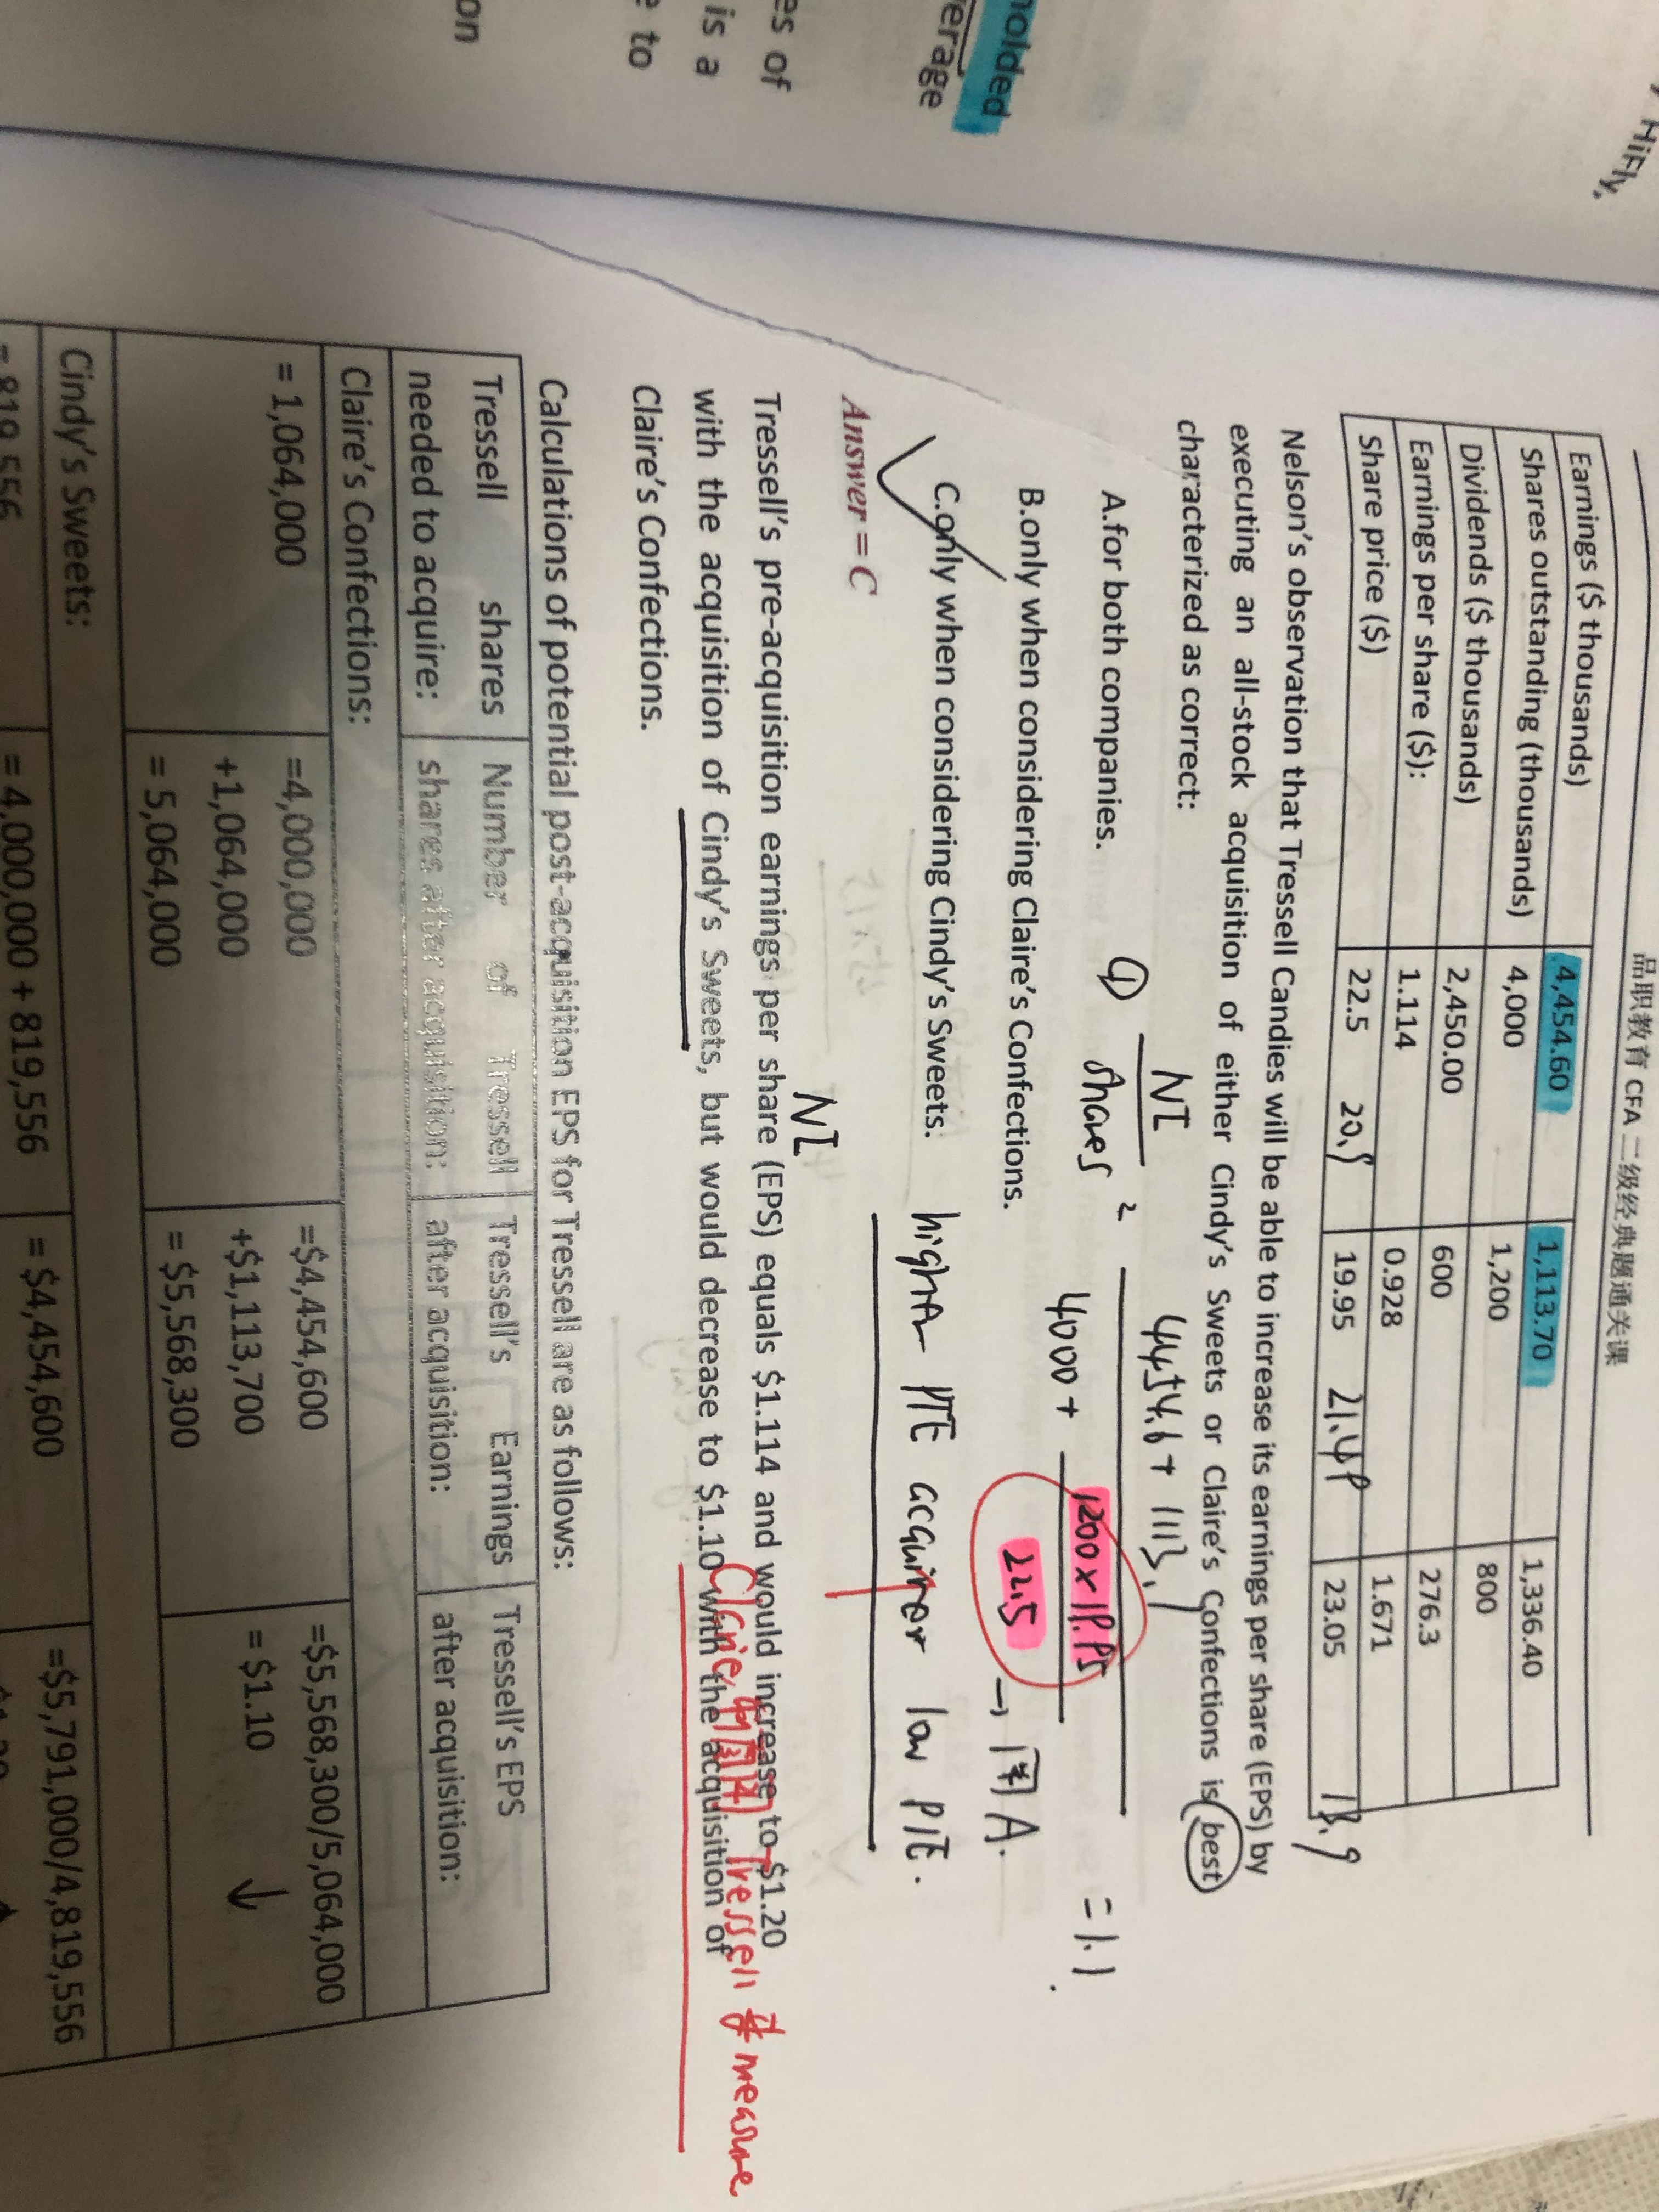 HiFly,
holded
erage
es of
is a
e to
on
品职教育 CFA 二级经典题通关课
Earnings ($ thousands) 4,454.60 1,113.70 1,336.40
Shares outstanding (thousands) 4,000 1,200 800
Dividends ($ thousands) 2,450.00 600 276.3
Earnings per share ($): 1.114 0.928 1.671
Share price ($) 22.5 20.9 19.95 21.49 23.05 13.9
Nelson's observation that Tressell Candies will be able to increase its earnings per share (EPS) by
executing an all-stock acquisition of either Cindy's Sweets or Claire's Confections is best
characterized as correct:
A.for both companies.
① NI
shares
2 4454.6 + 1113.7
4000 + 1200 × 19.95
22.5
= 1.1
B.only when considering Claire's Confections.
C.only when considering Cindy's Sweets.
higher P/E acquirer low P/E.
Answer = C
NI
Tressell's pre-acquisition earnings per share (EPS) equals $1.114 and would increase to $1.20
with the acquisition of Cindy's Sweets, but would decrease to $1.10 with the acquisition of
Claire's Confections.
measure
Calculations of potential post-acquisition EPS for Tressell are as follows:
Tressell shares needed to acquire: Number of Tressell shares after acquisition: Tressell's Earnings after acquisition: Tressell's EPS after acquisition:
Claire's Confections:
= 1,064,000 =4,000,000 =$4,454,600 =$5,568,300/5,064,000
+1,064,000 +$1,113,700 = $1.10 ↓
= 5,064,000 = $5,568,300
Cindy's Sweets:
= 819,556 = 4,000,000 + 819,556 = $4,454,600 =$5,791,000/4,819,556